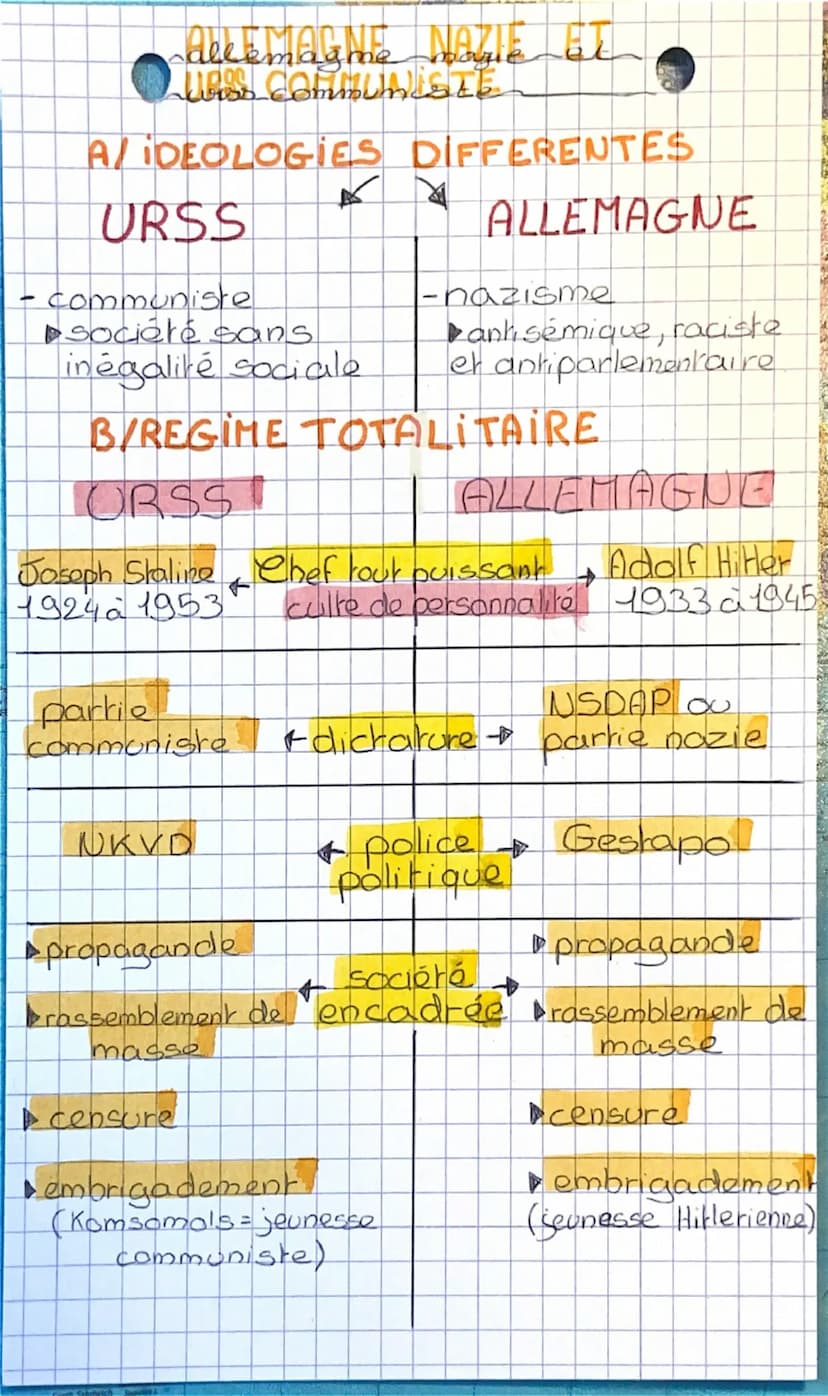 ALLEMAGNE NAZIE ET
allemagne nazie et
URSS COMMUNISTE
A/ iDEOLOGiES DiFFERENTES
URSS
ALLEMAGNE
- communiste
société sans
inégalité sociale
-nazisme
antisémique, raciste
et antiparlementaire
B/REGiME TOTALiTAiRE
URSS
ALLEMAGNE
Joseph Staline ← Chef tout puissant → Adolf Hitler
1924 à 1953 culte de personnalité 1933 à 1945
partie
communiste
← dictature →
NSDAP ou
partie nazie
NKVD
← police →
politique
Gestapo
propagande
rassemblement de
masse
censure
embrigadement
(Komsomols = jeunesse
communiste)
← société →
encadrée
propagande
rassemblement de
masse
censure
embrigadement
(jeunesse Hitlerienne)